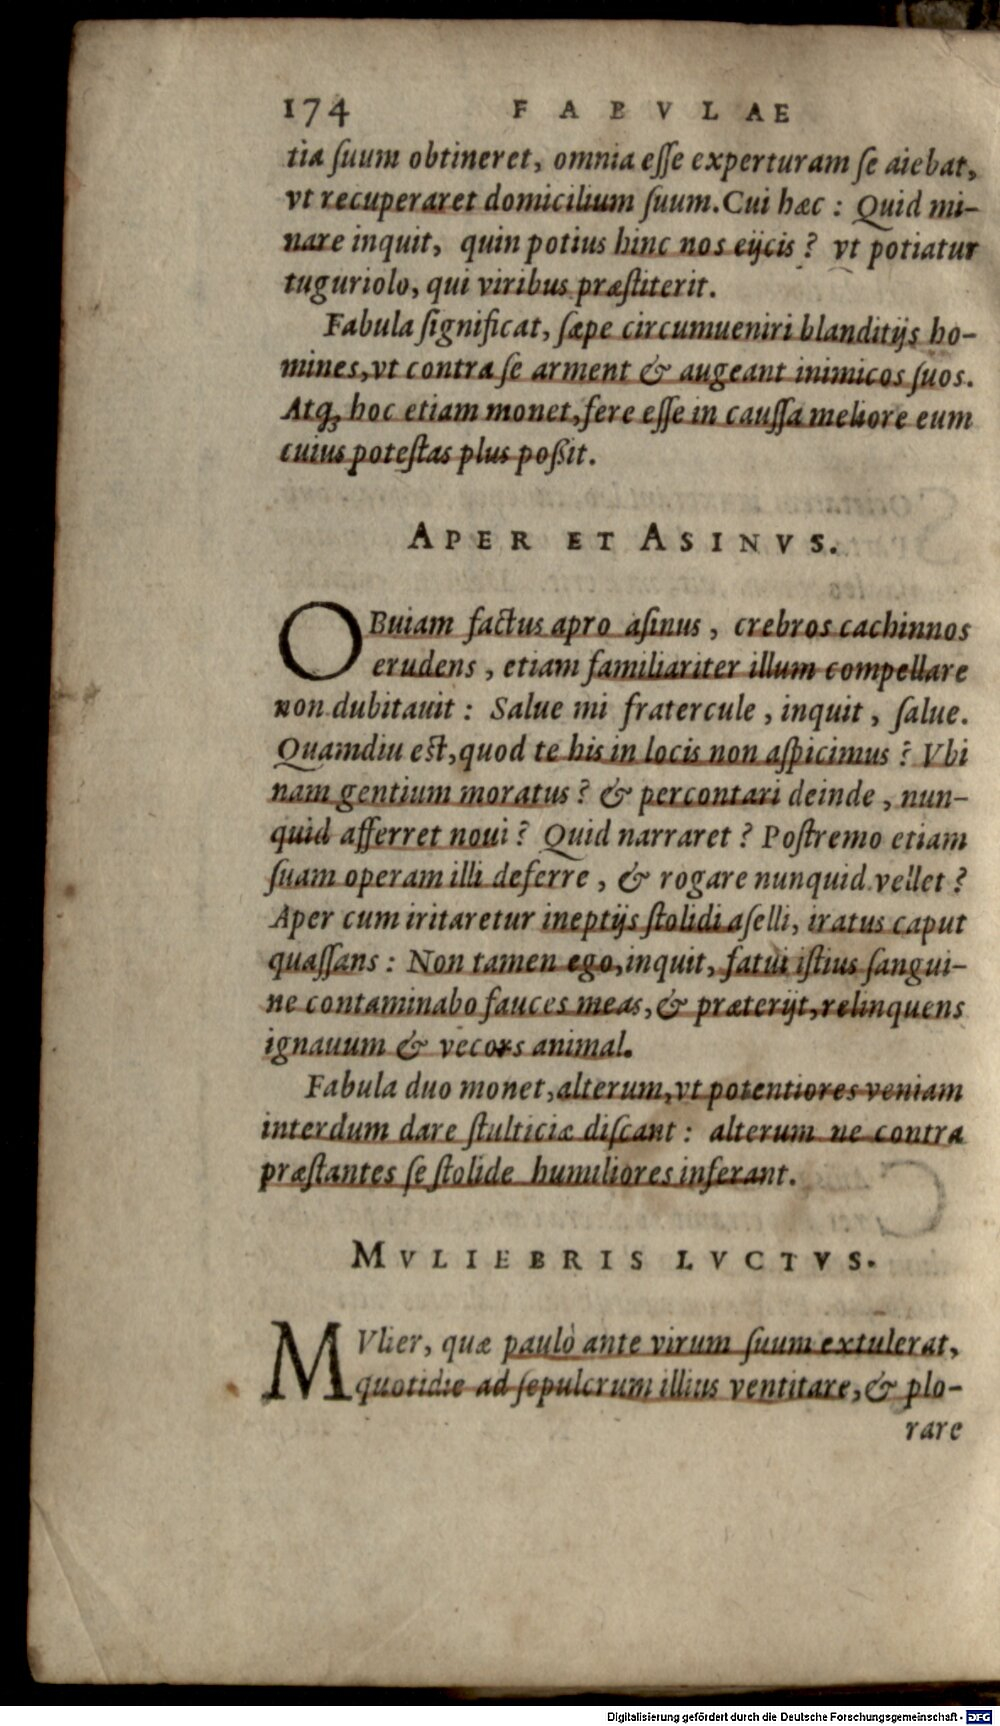 174 FABVLAE
tia ſuum obtineret, omnia eſſe experturam ſe aiebat,
vt recuperaret domicilium ſuum. Cui hæc : Quid mi-
nare inquit, quin potius hinc nos eijcis ? vt potiatur
tuguriolo, qui viribus præſtiterit.
Fabula ſignificat, ſæpe circumueniri blanditijs ho-
mines, vt contra ſe arment & augeant inimicos ſuos.
Atq; hoc etiam monet, fere eſſe in cauſſa meliore eum
cuius poteſtas plus poßit.
APER ET ASINVS.
OBuiam factus apro aſinus, crebros cachinnos
erudens, etiam familiariter illum compellare
non dubitauit : Salue mi fratercule, inquit, ſalue.
Quamdiu eſt, quod te his in locis non aſpicimus ? Vbi
nam gentium moratus ? & percontari deinde, nun-
quid afferret noui ? Quid narraret ? Poſtremo etiam
ſuam operam illi deferre, & rogare nunquid vellet ?
Aper cum iritaretur ineptijs ſtolidi aſelli, iratus caput
quaſſans : Non tamen ego, inquit, fatui iſtius ſangui-
ne contaminabo fauces meas, & præterijt, relinquens
ignauum & vecors animal.
Fabula duo monet, alterum, vt potentiores veniam
interdum dare ſtulticiæ diſcant : alterum ne contra
præſtantes ſe ſtolide humiliores inferant.
MVLIEBRIS LVCTVS.
MVlier, quæ paulò ante virum ſuum extulerat,
quotidie ad ſepulcrum illius ventitare, & plo-
rare
Digitalisierung gefördert durch die Deutsche Forschungsgemeinschaft - DFG